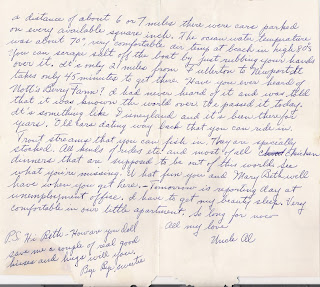 a distance of about 6 or 7 miles there were cars parked
on every available square inch. The ocean water temperature
was about 70°, very comfortable. air temp at beach in high 80's
You can scrape salt off the boat by just rubbing your hands
over it. It's only 21 miles from Fullerton to Newport. It
takes only 45 minutes to get there. Have you ever heard of
Nott's Berry Farm? I had never heard of it and was told
that it was known the world over. We passed it today.
It's something like Disneyland and it's been there for
years. Old horse drawn way back that you can ride in.
Trout streams that you can fish in. They are specially
stocked. All kinds of rides etc and most of all Chicken
dinners that are supposed to be out of this world. See
what you're missing. What fun you and Mary Beth will
have when you get here. - Tomorrow is reporting day at
unemployment office. I have to get my beauty sleep. Very
comfortable in our little apartment. So long for now
All my love
Uncle Al
P.S. Hi Beth - How are you doll
save me a couple of real good
kisses and hugs will you.
Bye Bye, sweetie